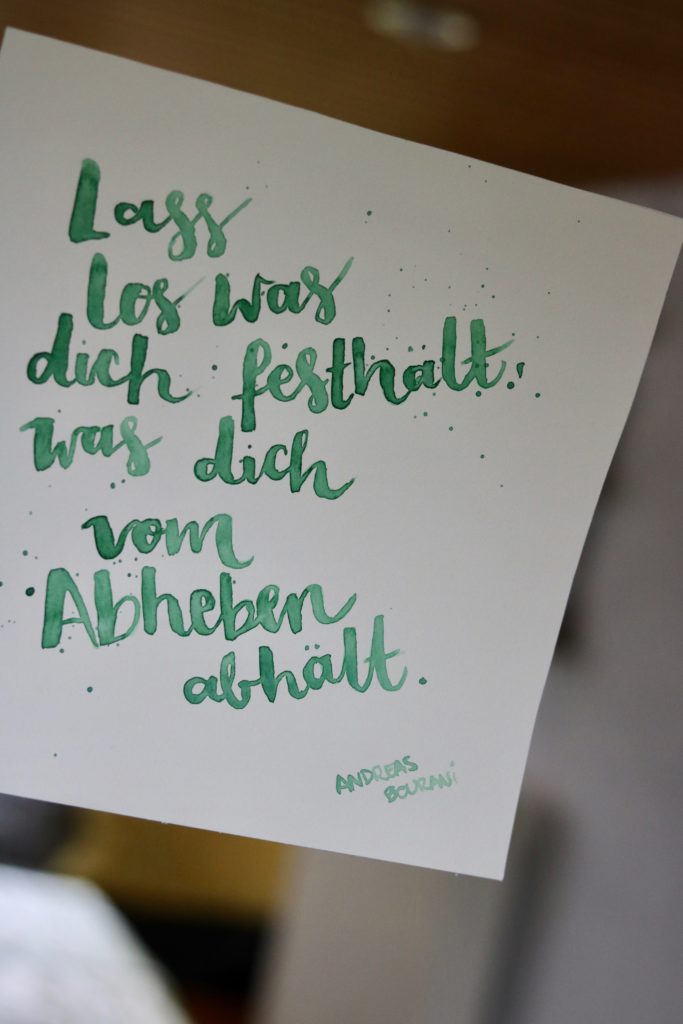 Lass
los was
dich festhält,
was dich
vom
Abheben
abhält.
ANDREAS
BOURANI